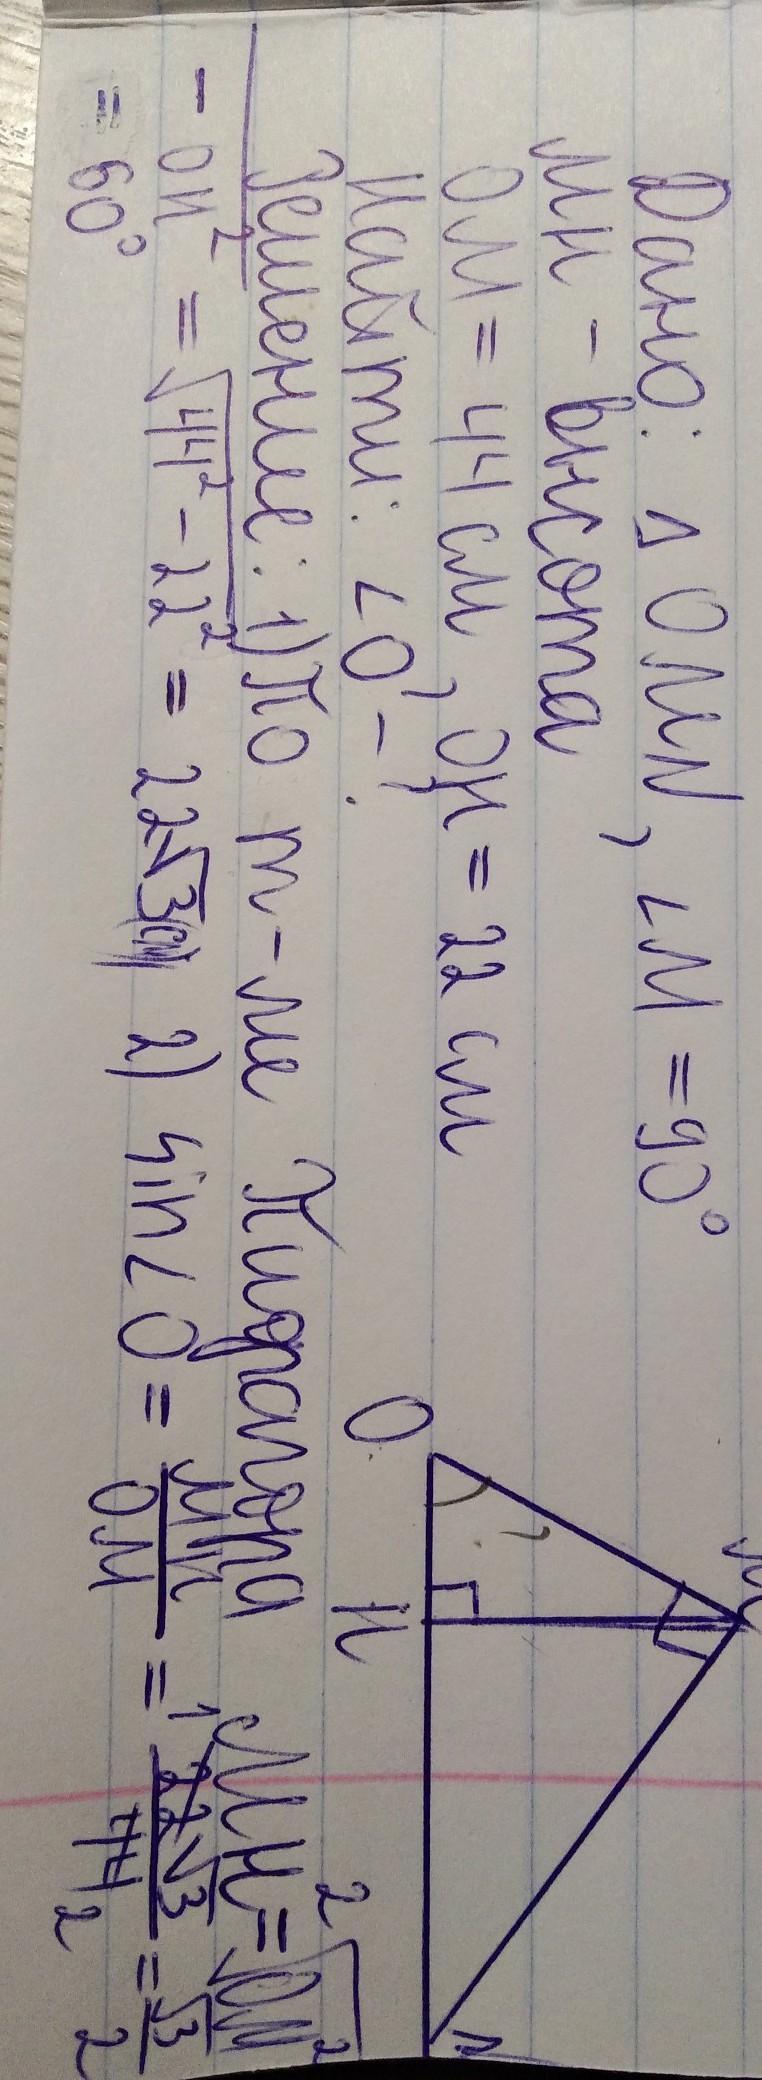 Дано: △ OMN, ∠M = 90°
MH - высота
OM = 44 см, OH = 22 см
Найти: ∠O - ?
Решение: 1) По т-ме Пифагора MH² = √OM²
- OH² = √44² - 22² = 22√3(см) 2) sin∠O = MH/OM = 22√3/44 = √3/2
= 60°
O
H
M
N
?
1
2